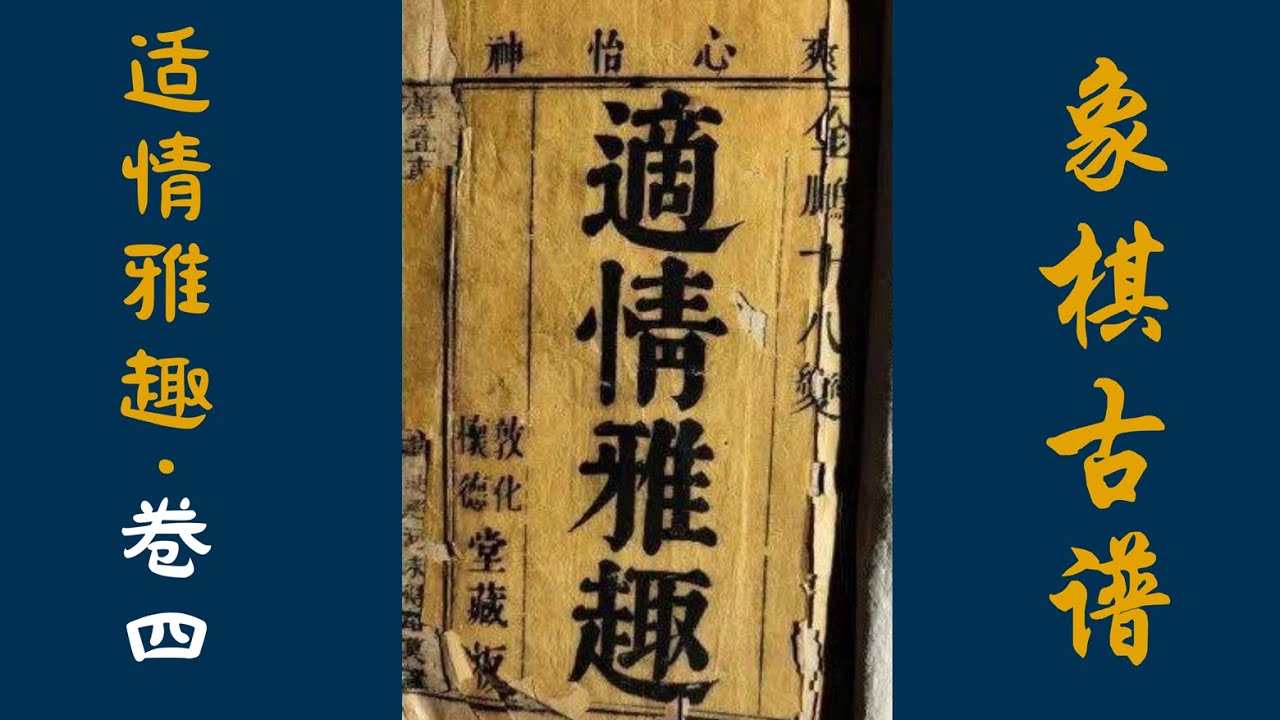 适情雅趣·卷四
爽心怡神
金鵬十八變
適情雅趣
敦化
懷德
堂藏板
象棋古谱